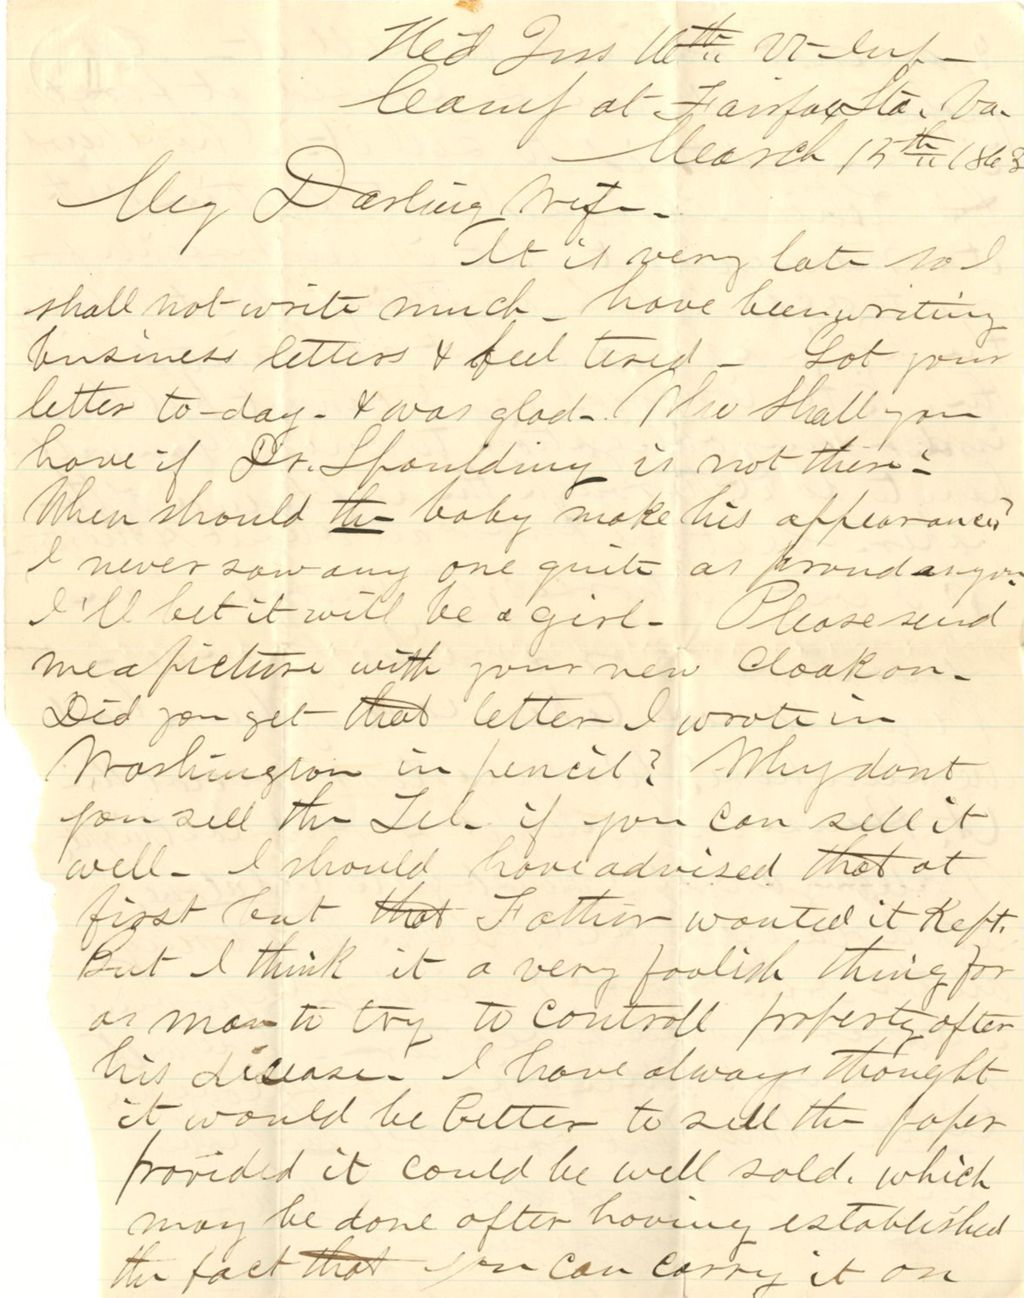 Hed Qrs 16th Vt Inf-
Camp at Fairfax Sta. Va.
March 15th 1863
My Darling Wife-
It is very late so I
shall not write much - have been writing
business letters & feel tired - Got your
letter to-day - & was glad - Who shall you
have if Dr. Spoulding is not there -
When should the baby make his appearance?
I never saw any one quite as proud as you.
I'll bet it will be a girl - Please send
me a picture with your new cloak on -
Did you get that letter I wrote in
Washington in pencil? Why dont
you sell the Tel. if you can sell it
well - I should have advised that at
first but that Father wanted it Kept.
But I think it a very foolish thing for
a man to try to controll property after
his disease - I have always thought
it would be better to sell the paper
provided it could be well sold. which
may be done after having established
the fact that you can carry it on